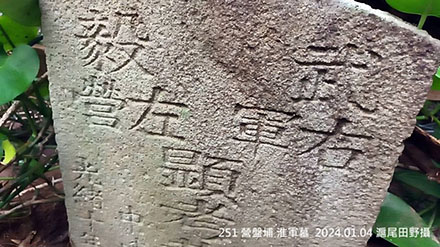 武毅
右軍左營
顯考
光緒十
251 營盤埔.淮軍墓 2024.01.04 滬尾田野攝